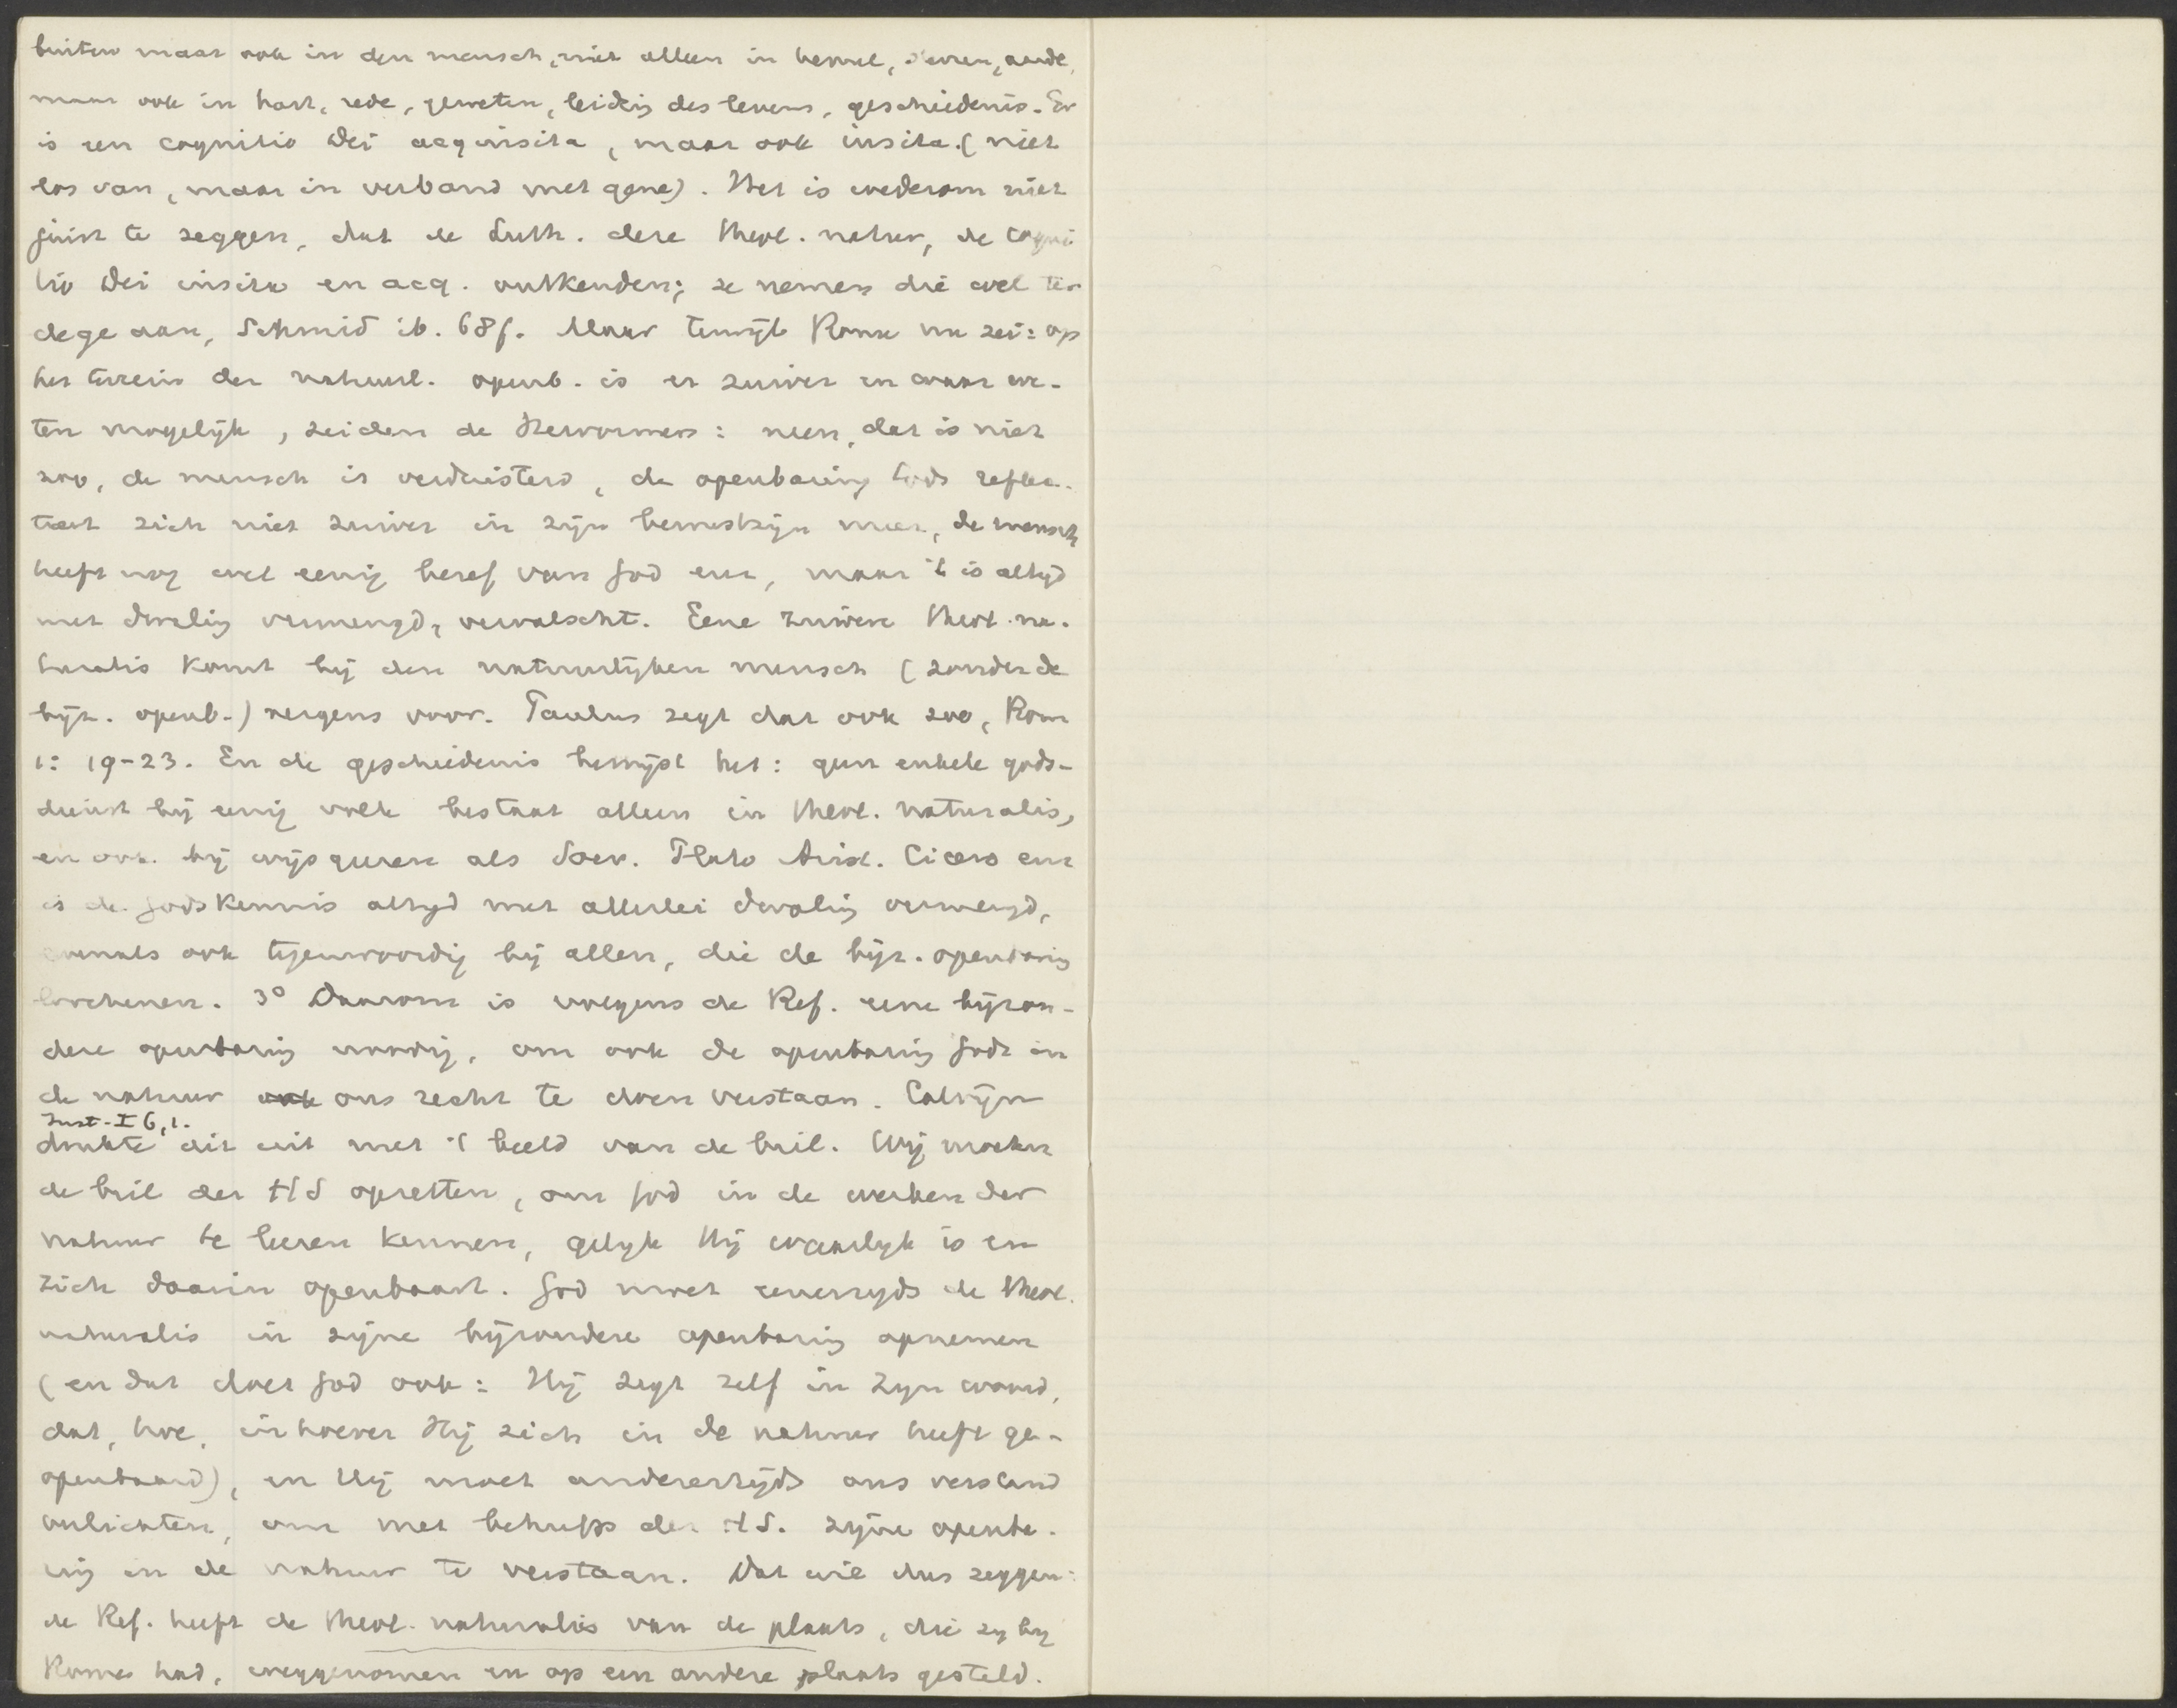 buiten maar ook in den mensch, niet alleen in hemel, sterren, aarde,
maar ook in hart, rede, geweten, leiding des levens, geschiedenis. Er
is een cognitio Dei acquisita, maar ook insita. (niet
los van, maar in verband met gene). Het is wederom niet
juist te zeggen, dat de Luth. deze theol. natur, de cogni
tio Dei insita en acq. ontkenden; ze nemen die wel ter
dege aan, Schmid ib. 68f. Maar terwijl Rome nu zei: op
het terrein der natuurl. openb. is er zuiver en waar we-
ten mogelijk, zeiden de Hervormers: neen, dat is niet
zoo, de mensch is verduisterd, de openbaring Gods reflec-
teert zich niet zuiver in zijn bewustzijn meer, de mensch
heeft nog wel eenig besef van God enz, maar 't is altijd
met dwaling vermengd, vervalscht. Eene zuivere theol. na-
turalis komt bij den natuurlijken mensch (zonder de
bijz. openb.) nergens voor. Paulus zegt dat ook zoo, Rom
1: 19-23. En de geschiedenis bewijst het: geen enkele gods-
dienst bij eenig volk bestaat alleen in theol. naturalis,
en ook bij wijsgeeren als Socr. Plato Arist. Cicero enz
is de Godskennis altijd met allerlei dwaling vermengd,
evenals ook tegenwoordig bij allen, die de bijz. openbaring
loochenen. 3° Daarom is volgens de Ref. eene bijzon-
dere openbaring noodig, om ook de openbaring Gods in
de natuur ook ons recht te doen verstaan. Calvijn
Inst. I 6,1.
drukte dit uit met 't beeld van de bril. Wij moeten
de bril der HS opzetten, om God in de werken der
natuur te leeren kennen, gelijk Hij waarlijk is en
zich daarin openbaart. God moet eenerzijds de theol.
naturalis in zijne bijzondere openbaring opnemen
(en dat doet God ook: Hij zegt zelf in Zijn woord,
dat, hoe, inhoever Hij zich in de natuur heeft ge-
openbaard), en Hij moet anderzijds ons verstand
verlichten, om met behulp der HS. zijne openba-
ring in de natuur te verstaan. Dat wil dus zeggen:
de Ref. heeft de theol. naturalis van de plaats, die zij bij
Rome had, weggenomen en op een andere plaats gesteld.